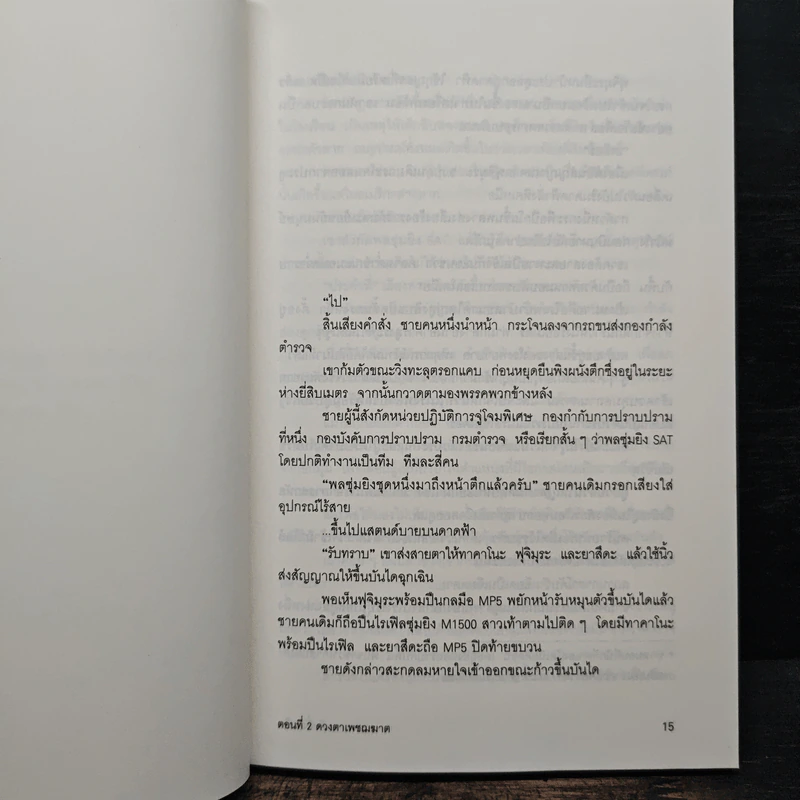 “ไป”
สิ้นเสียงคำสั่ง ชายคนหนึ่งนำหน้า กระโจนลงจากรถขนส่งกองกำลัง
ตำรวจ
เขาก้มตัวขณะวิ่งทะลุตรอกแคบ ก่อนหยุดยืนพิงผนังตึกซึ่งอยู่ในระยะ
ห่างยี่สิบเมตร จากนั้นกวาดตามองพรรคพวกข้างหลัง
ชายผู้นี้สังกัดหน่วยปฏิบัติการจู่โจมพิเศษ กองกำกับการปราบปราม
ที่หนึ่ง กองบังคับการปราบปราม กรมตำรวจ หรือเรียกสั้น ๆ ว่าพลซุ่มยิง SAT
โดยปกติทำงานเป็นทีม ทีมละสี่คน
“พลซุ่มยิงชุดหนึ่งมาถึงหน้าตึกแล้วครับ” ชายคนเดิมกรอกเสียงใส่
อุปกรณ์ไร้สาย
...ขึ้นไปแสตนด์บายบนดาดฟ้า
“รับทราบ” เขาส่งสายตาให้ทาคาโนะ ฟุจิมุระ และยาสึดะ แล้วใช้นิ้ว
ส่งสัญญาณให้ขึ้นบันไดฉุกเฉิน
พอเห็นฟุจิมุระพร้อมปืนกลมือ MP5 พยักหน้ารับหมุนตัวขึ้นบันไดแล้ว
ชายคนเดิมก็ถือปืนไรเฟิลซุ่มยิง M1500 สาวเท้าตามไปติด ๆ โดยมีทาคาโนะ
พร้อมปืนไรเฟิล และยาสึดะถือ MP5 ปิดท้ายขบวน
ชายดังกล่าวสะกดลมหายใจเข้าออกขณะก้าวขึ้นบันได
ตอนที่ 2 ดวงตาเพชฌฆาต
15